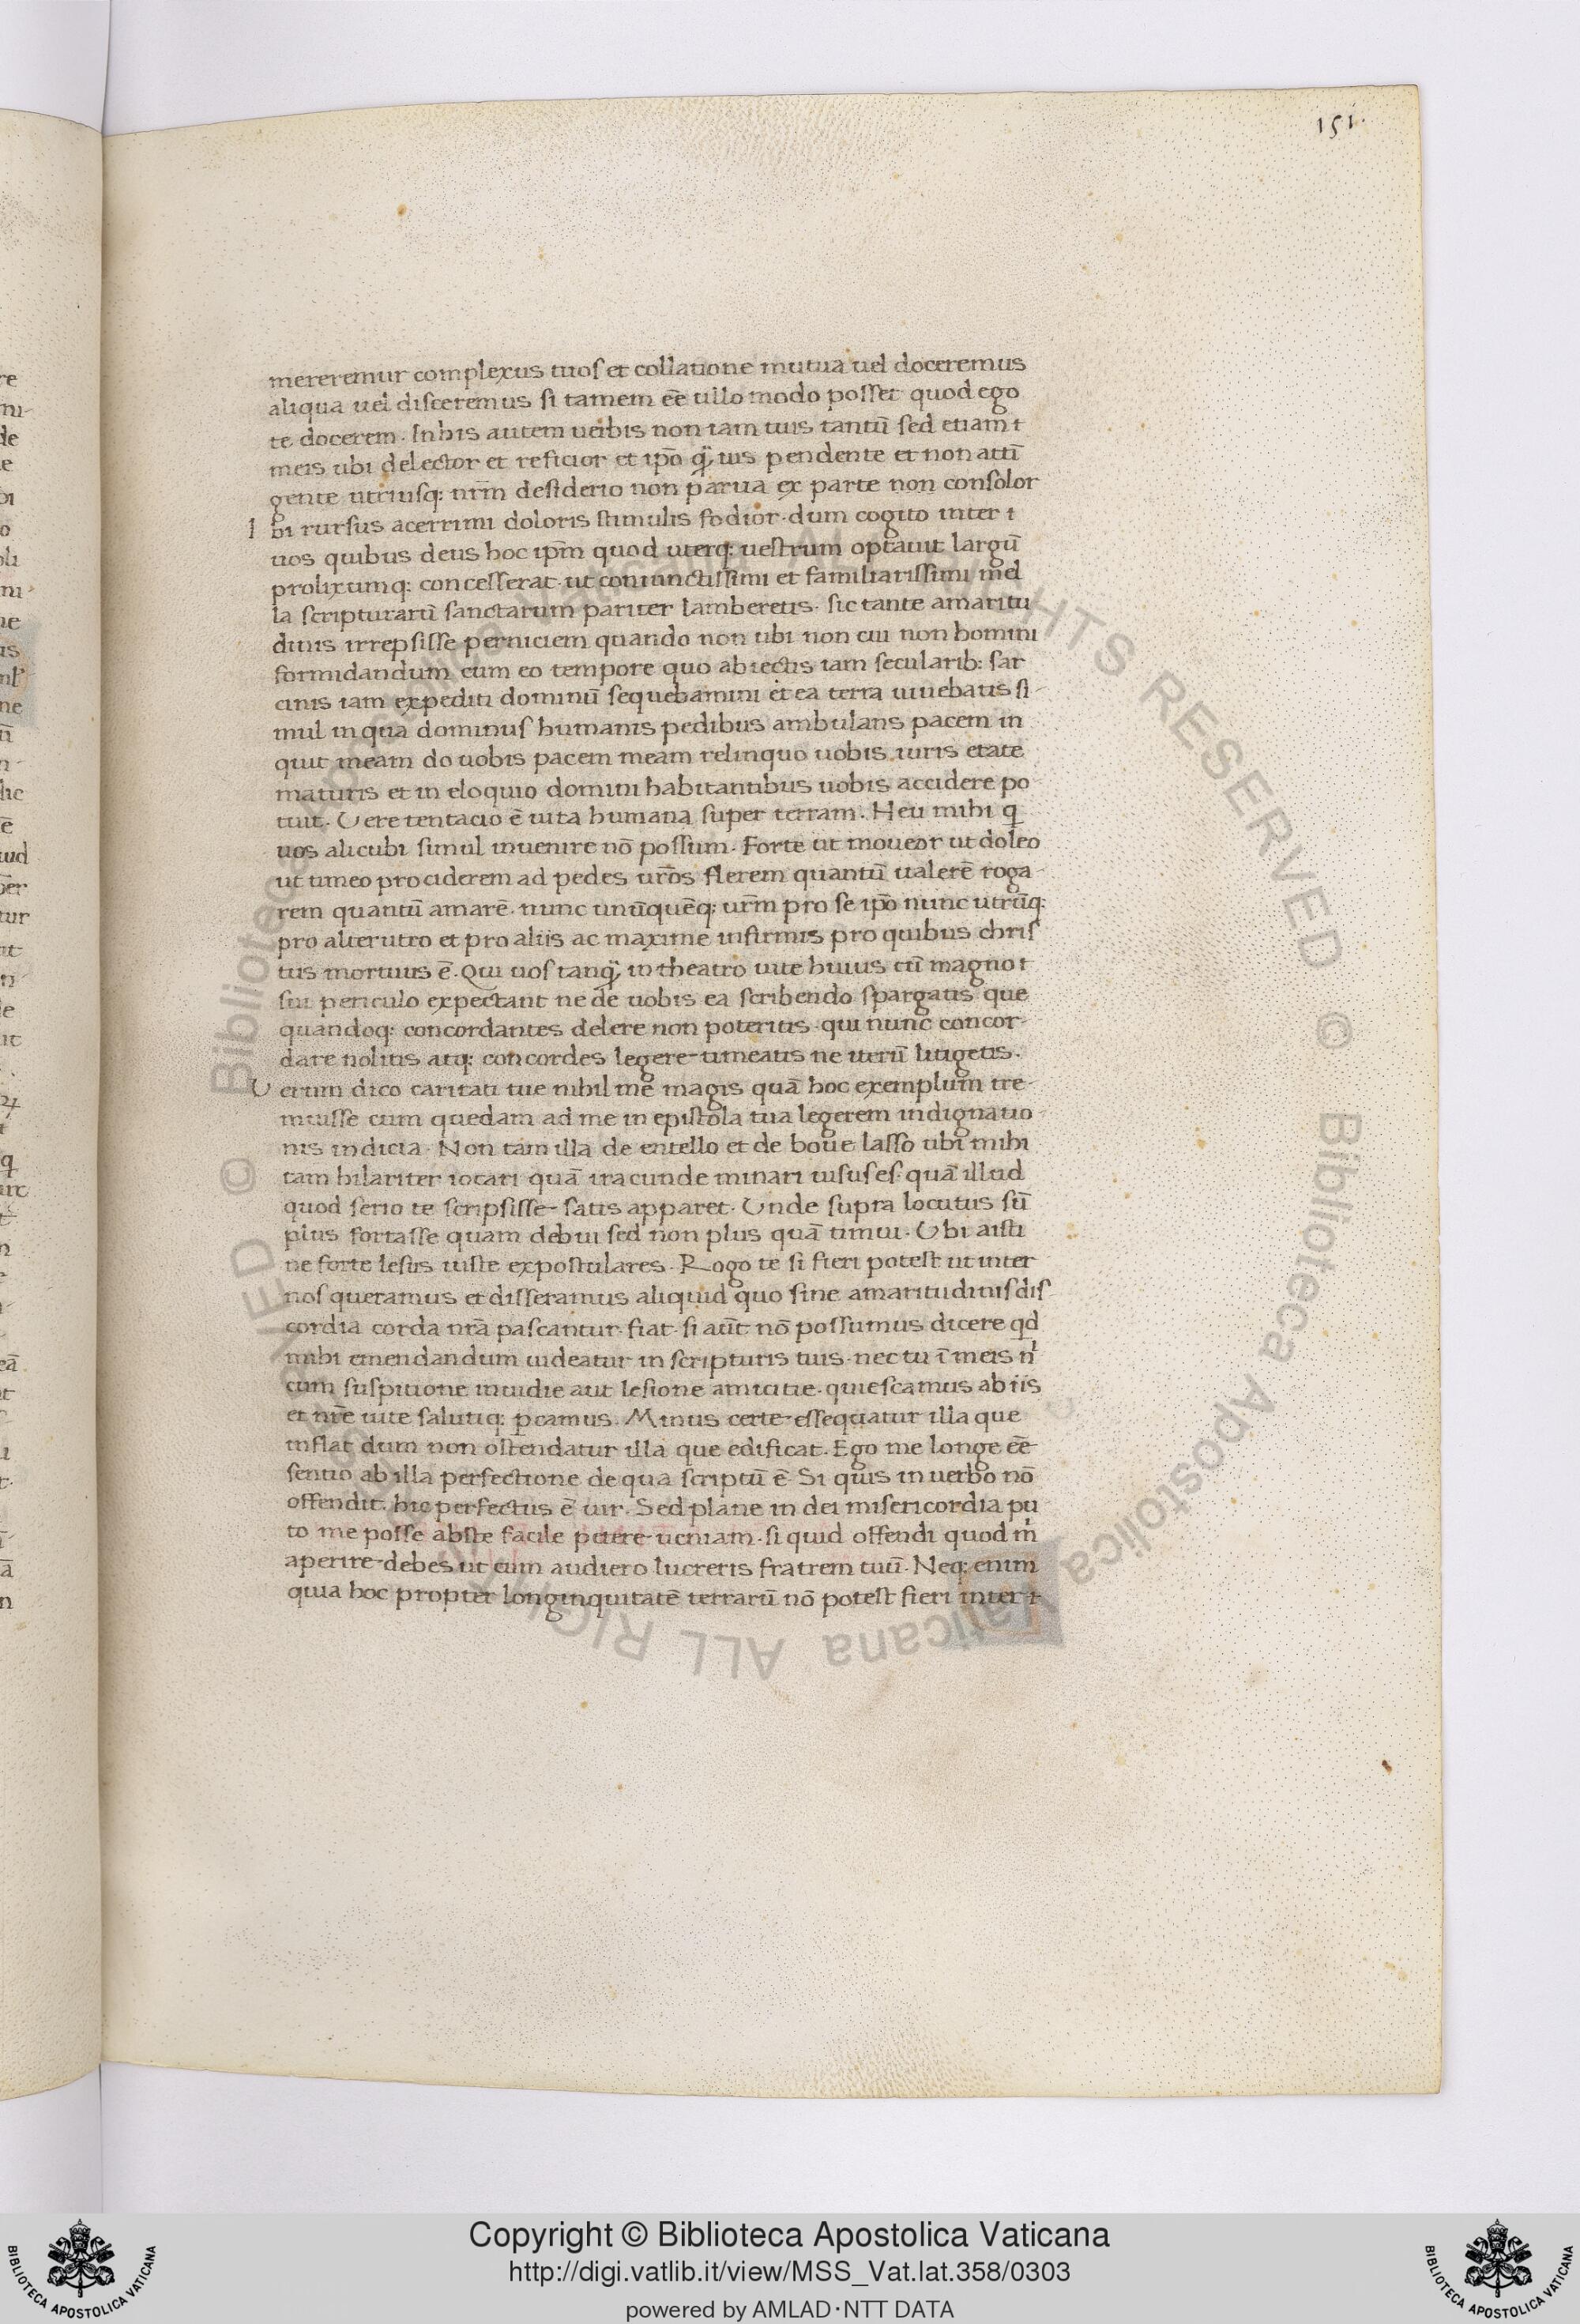 151.
mereremur complexus tuos et collatione mutua uel doceremus
aliqua uel disceremus si tamem eē ullo modo posset quod ego
te docerem. In his autem uerbis non iam tuis tantū sed etiam ɩ
meis ubi delector et reficior et ip̄o q̄̃uis pendente et non attī
gente utriusq: nr̄m desiderio non parua ex parte non consolor
I bi rursus acerrimi doloris stimulis fodior. dum cogito inter ɩ
uos quibus deus hoc ip̄m quod uterq: uestrum optauit largū
prolixumq: concesserat. ut coniunctissimi et familiarissimi mel
la scripturarū sanctarum pariter lamberetis. sic tante amaritu
dinis irrepsisse perniciem quando non ubi non cui non homini
formidandum cum eo tempore quo abiectis iam secularib: sar
cinis iam expediti dominū sequebamini et ea terra uiuebatis si-
mul in qua dominus humanis pedibus ambulans pacem in
quit meam do uobis pacem meam relinquo uobis. uiris etate
maturis et in eloquio domini habitantibus uobis accidere po-
tuit. Vere tentacio ē uita humana super terram. Heu mihi q̄
uos alicubi simul inuenire nō possum. Forte ut moueor ut doleo
ut timeo prociderem ad pedes ur̄os flerem quantū ualerē roga-
rem quantū amarē. nunc unūquēq: ur̄m pro se ip̄o nunc utrūq:
pro alterutro et pro aliis ac maxime infirmis pro quibus chris
tus mortuus ē. Qui uos tanq̄̃ in theatro uite huius cū magno ɩ
sui periculo expectant ne de uobis ea scribendo spargatis que
quandoq: concordantes delere non poteritis. qui nunc concor-
dare nolitis atq: concordes legere timeatis ne iterū litigetis.
V erum dico caritati tue nihil me magis quā hoc exemplum tre-
muisse cum quedam ad me in epistola tua legerem indignatio-
nis indicia. Non tam illa de entello et de boue lasso ubi mihi
tam hilariter iocari quā iracunde minari uisus es. quā illud
quod serio te scripsisse satis apparet. Unde supra locutus sū
plus fortasse quam debui sed non plus quā timui. Ubi aisti
ne forte lesus iuste expostulares. Rogo te si fieri potest ut inter
nos queramus et disseramus aliquid quo sine amaritudinis dis
cordia corda nr̄a pascantur. fiat. si aūt nō possumus dicere qd
mihi emendandum uideatur in scripturis tuis. nec tu ī meis n̄
cum suspitione inuidie aut lesione amicitie. quiescamus ab iis
et nr̄e uite salutiq: pcamus. Minus certe essequatur illa que
inflat dum non ostendatur illa que edificat. Ego me longe eē
sentio ab illa perfectione de qua scriptū ē. Si quis in uerbo nō
offendit. hic perfectus ē uir. Sed plane in dei misericordia pu
to me posse abste facile petere ueniam. si quid offendi quod m̄
aperire debes ut cum audiero lucreris fratrem tuū. Neq: enim
quia hoc propter longinquitatē terrarū nō potest fieri inter ɩ
© Biblioteca Apostolica Vaticana ALL RIGHTS RESERVED
Copyright © Biblioteca Apostolica Vaticana
http://digi.vatlib.it/view/MSS_Vat.lat.358/0303
powered by AMLAD·NTT DATA
BIBLIOTECA APOSTOLICA VATICANA
BIBLIOTECA APOSTOLICA VATICANA